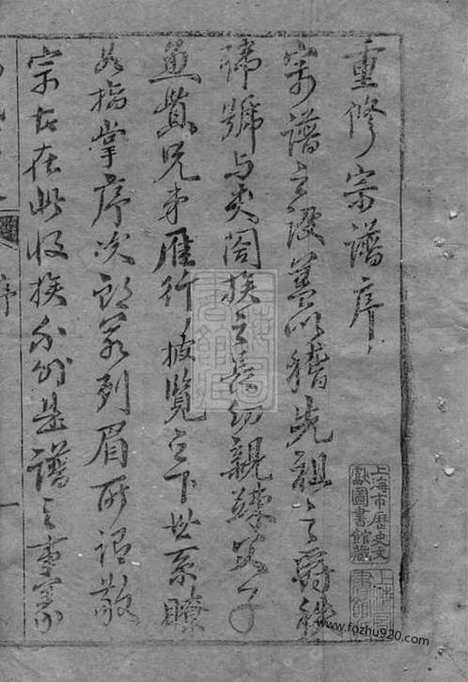 重修宗譜序
宗譜之設蓋以稽先祖之爵秩
諱號与夫閤族之長幼親疎父子
兄弟雁行披覽之下世系瞭
如指掌序次昭若列眉所謂敬
宗在此收族亦在是譜之重
序
上海市歷史文獻圖書館藏
www.fozhu920.com